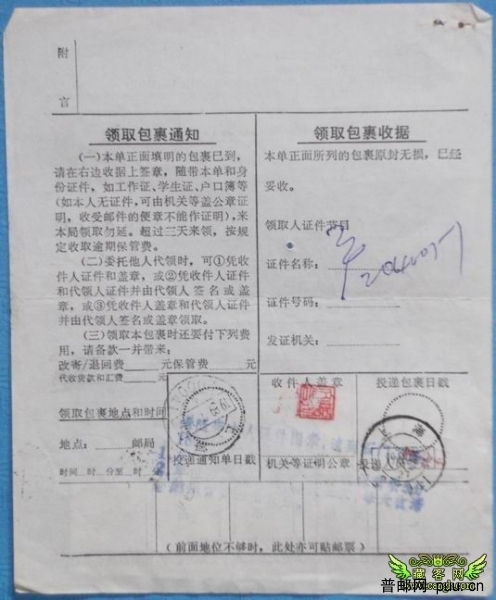 附
言
领取包裹通知
(一)本单正面填明的包裹已到,
请在右边收据上签章,随带本单和身
份证件,如工作证、学生证、户口簿等
(如本人无证件,可由机关等盖公章证
明,收受邮件的便章不能作证明),来
本局领取勿延。超过三天来领,按规
定收取逾期保管费。
(二)委托他人代领时,可①凭收
件人证件和盖章,或②凭收件人证件
和代领人证件并由代领人签名或盖
章,或③凭收件人盖章和代领人证件
并由代领人签名或盖章领取。
(三)领取本包裹时还要付下列费
用,请备款一并带来:
改寄/退回费____元保管费____元
代收货款和汇费____元
领取包裹地点和时间
地点:____邮局
投递通知单日戳
时间 时 分至 时
领取包裹收据
本单正面所列的包裹原封无损,已经
妥收。
领取人证件节目
证件名称:
证件号码:
发证机关:
收件人盖章
投递包裹日戳
机关等证明公章
投递人
(前面地位不够时,此处亦可贴邮票)
藏客网
普邮网-puu.cn